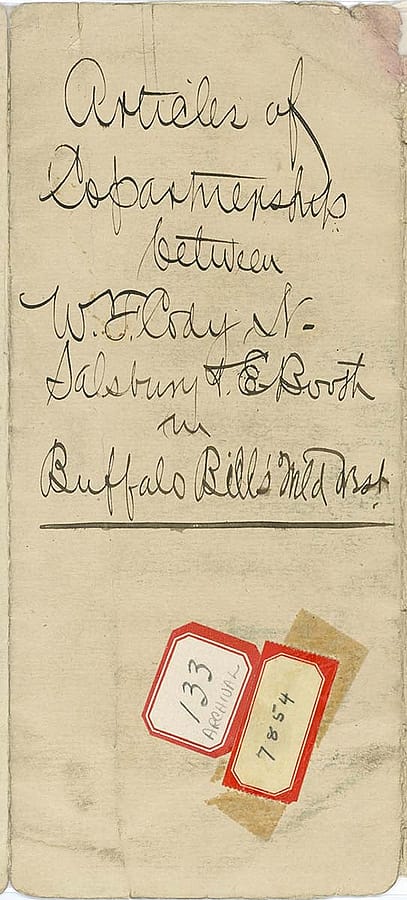 Articles of
Copartnership
between
W. F. Cody N-
Salsbury & E Booth
in
Buffalo Bill's Wld West
133
ARCHIVAL
7854